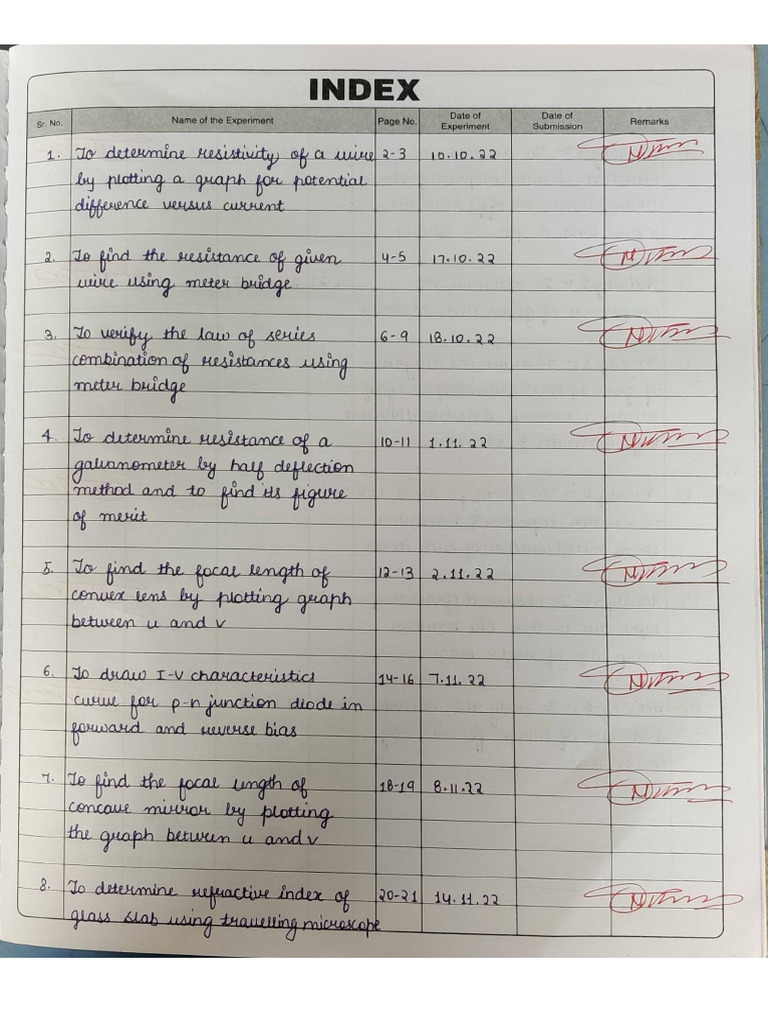 INDEX
Sr. No. Name of the Experiment Page No. Date of Experiment Date of Submission Remarks
1. To determine resistivity of a wire 2-3 10.10.22
by plotting a graph for potential
difference versus current
2. To find the resistance of given 4-5 17.10.22
wire using meter bridge
3. To verify the law of series 6-9 18.10.22
combination of resistances using
meter bridge
4. To determine resistance of a 10-11 1.11.22
galvanometer by half deflection
method and to find its figure
of merit
5. To find the focal length of 12-13 2.11.22
convex lens by plotting graph
between u and v
6. To draw I-V characteristics 14-16 7.11.22
curve for p-n junction diode in
forward and reverse bias
7. To find the focal length of 18-19 8.11.22
concave mirror by plotting
the graph between u and v
8. To determine refractive index of 20-21 14.11.22
glass slab using travelling microscope